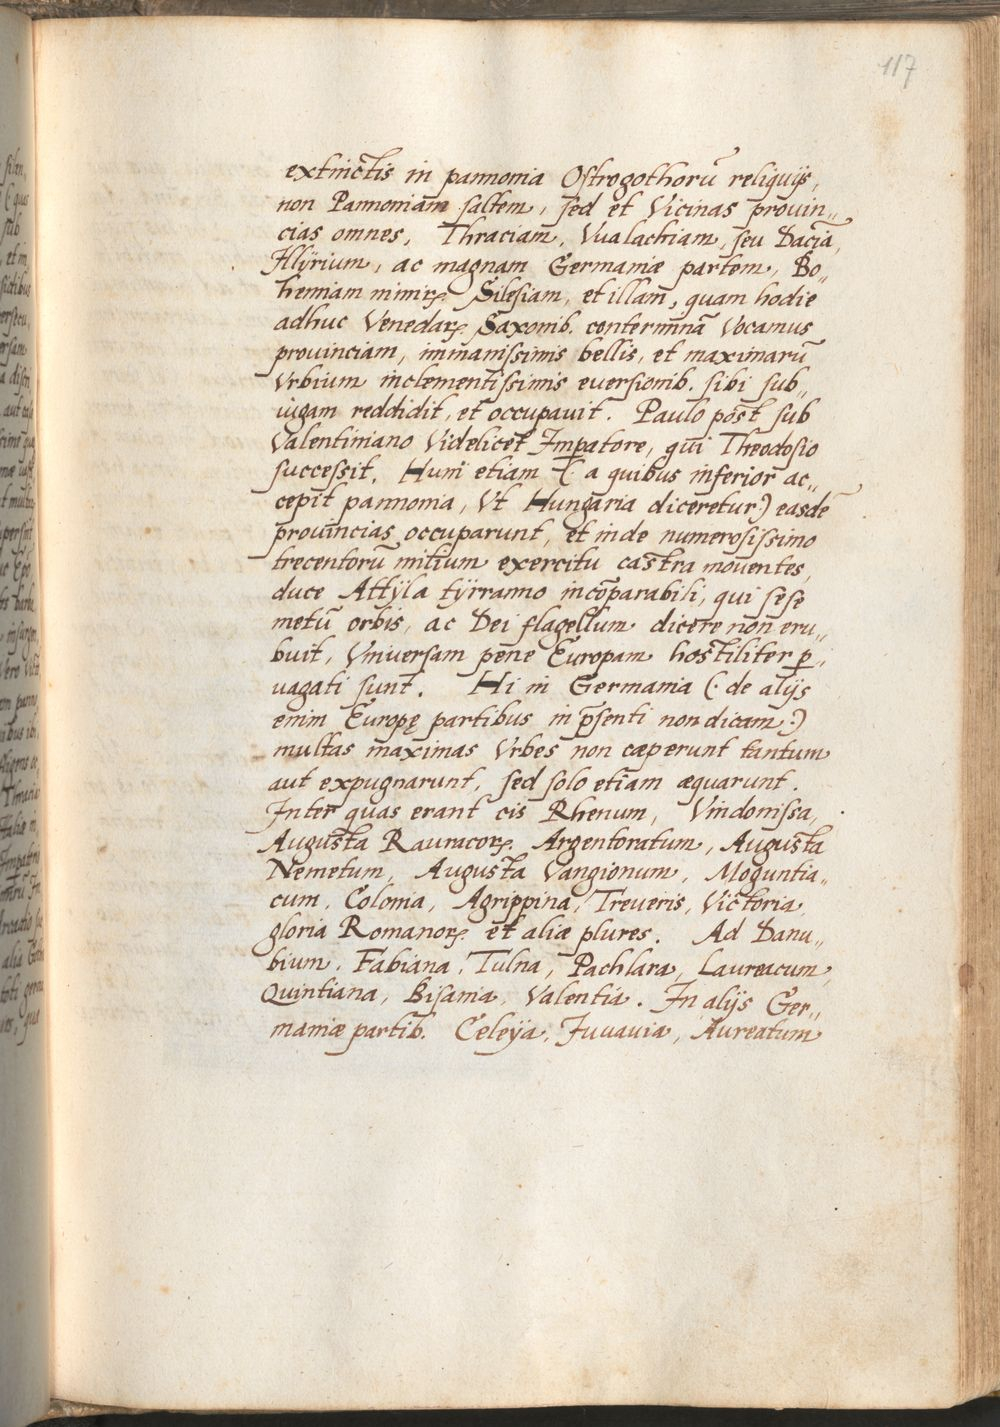 117
extinctis in pannonia Ostrogothorū reliquijs,
non Pannoniam saltem, sed et Vicinas prouin„
cias omnes, Thraciam, Vualachiam, seu Daciā,
Illÿrium, ac magnam Germaniæ partem, Bo„
hemiam nimirꝝ Silesiam, et illam, quam hodie
adhuc Venedarꝝ Saxonib. conterminā Vocamus
prouinciam, immanissimis bellis, et maximarū
Vrbium inclementissimis euersionib. sibi sub„
iugam reddidit, et occupauit. Paulo post sub
Valentiniano Videlicet Imꝑatore, qui Theodosio
successit, Huni etiam (: a quibus inferior ac„
cepit pannonia, Vt Hungaria diceretur:) easdē
prouincias occuparunt, et inde numerosissimo
trecentorū militum exercitu castra mouentes,
duce Attÿla tÿranno incōparabili, qui sese
metū orbis, ac Dei flagellum dicere non eru„
buit, Vniuersam pene Europam hostiliter ꝑ„
uagati sunt. Hi in Germania (: de alijs
enim Europę partibus in p̄senti non dicam:)
multas maximas Vrbes non cæperunt tantum
aut expugnarunt, sed solo etiam æquarunt.
Inter quas erant cis Rhenum, Vindonissa,
Augusta Rauracorꝝ. Argentoratum, Augusta
Nemetum, Augusta Vangionum, Moguntia„
cum, Colonia, Agrippina, Treueris, Victoria,
gloria Romanorꝝ et aliæ plures. Ad Danu„
bium, Fabiana, Tulna, Pachlara, Laureacum,
Quintiana, Bisania, Valentia. In alijs Ger„
maniæ partib. Celeÿa, Juuauia, Aureatum